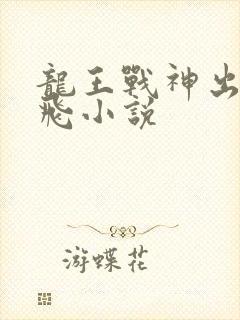 龍王戰神出
飛小說
游蝶花